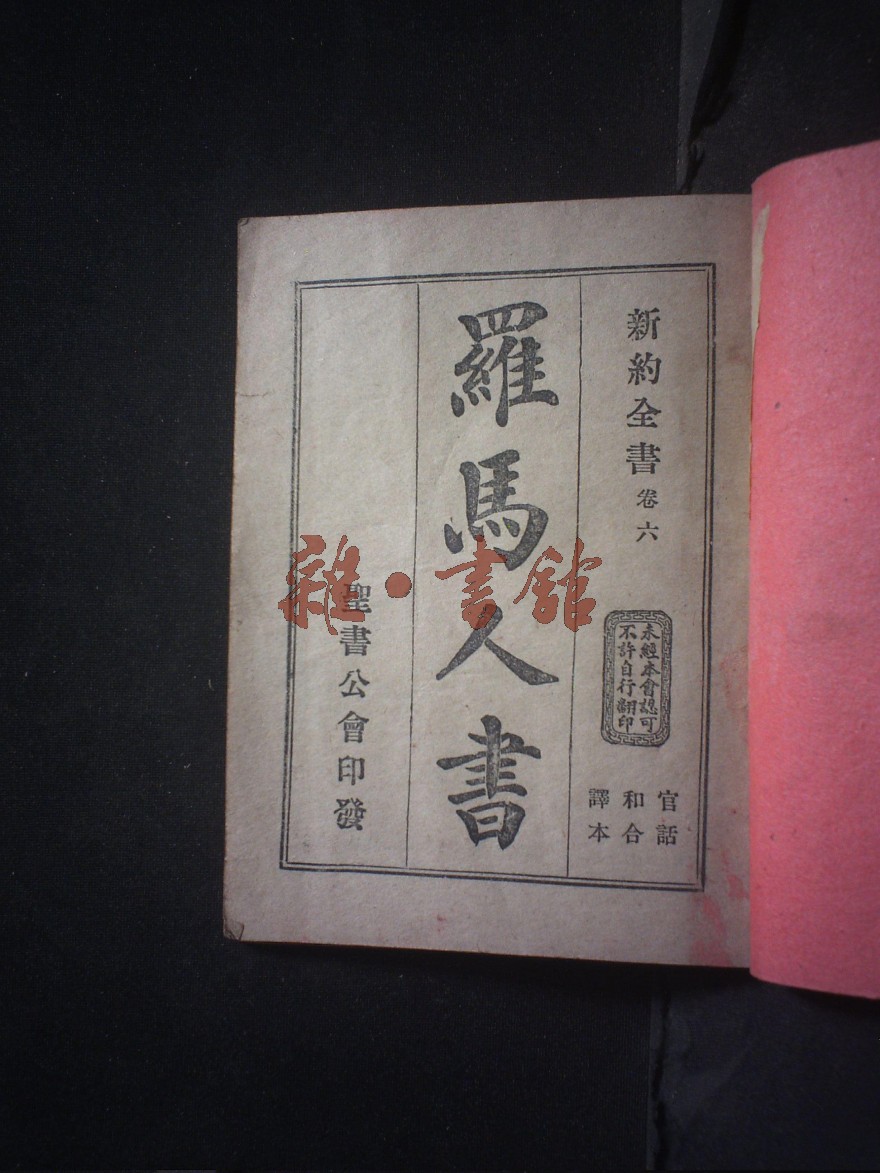 新約全書 卷六
未經本會認可
不許自行翻印
官話
和合
譯本
羅馬人書
聖書公會印發
雜·書館